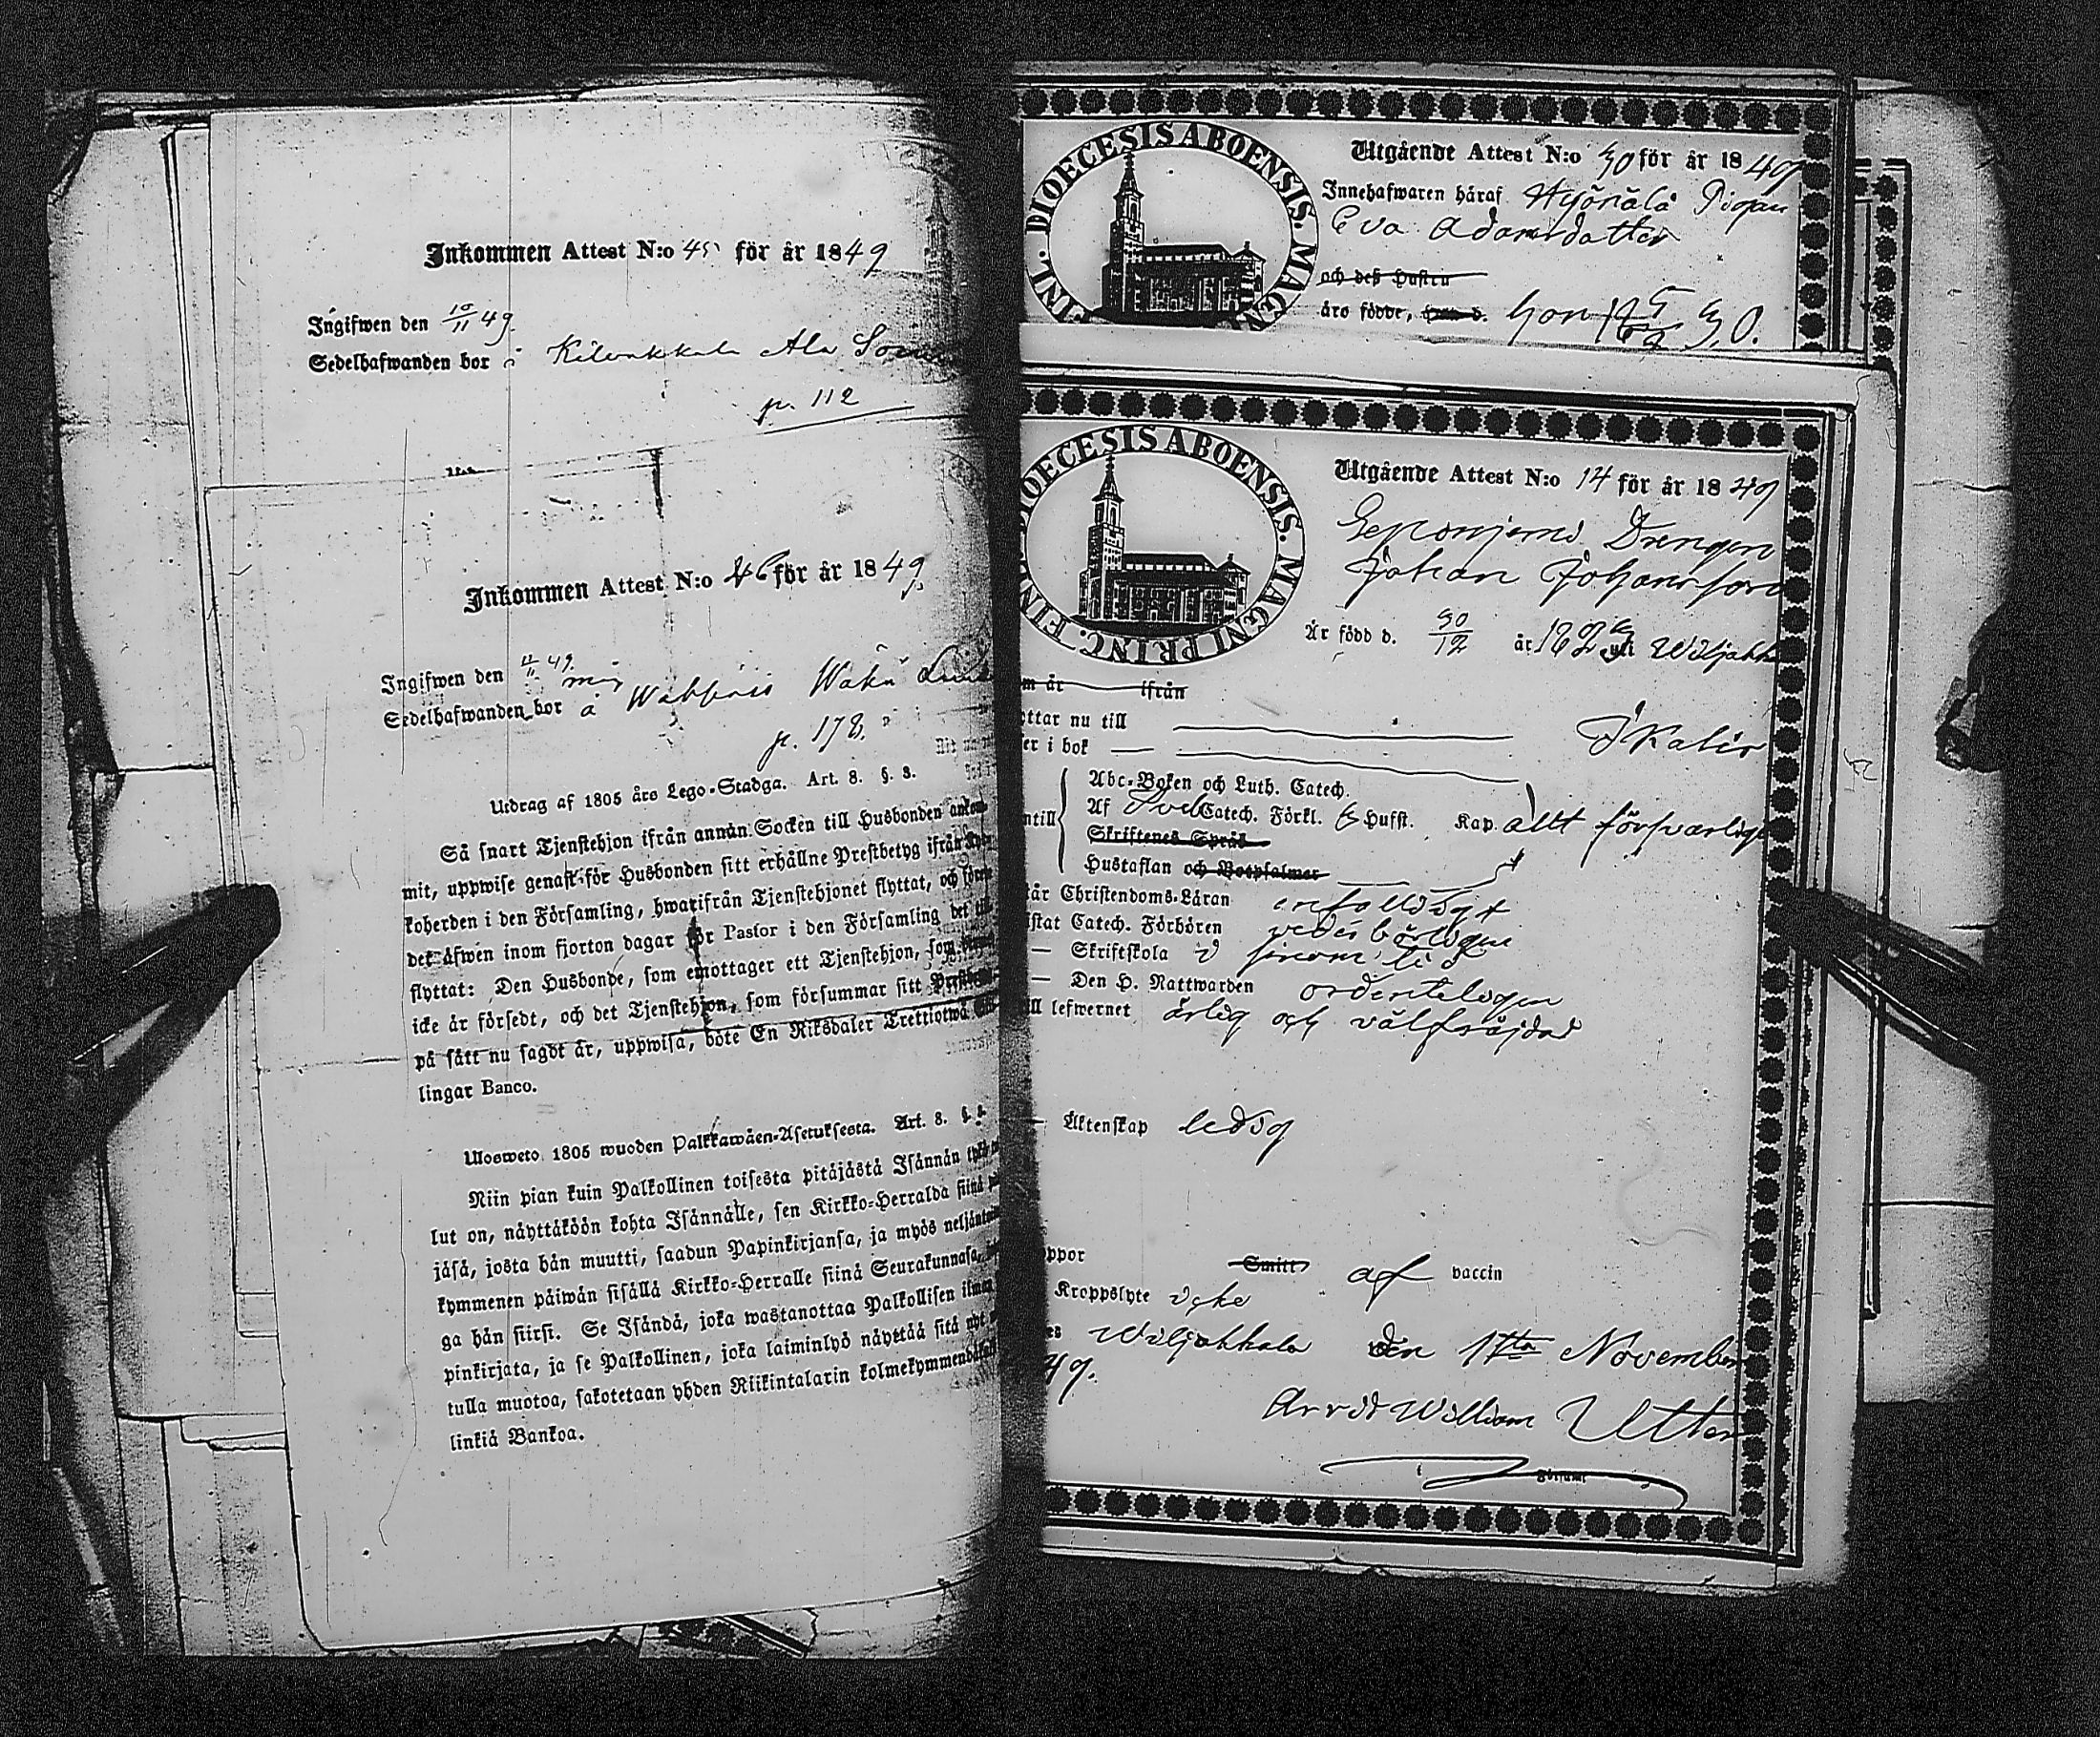 Inkommen Attest N:o 45 för år 1849
Ingifwen den 10/11 49.
Sedelhafwanden bor å Kilwakkala Ala
p. 112
Inkommen Attest N:o 46 för år 1849.
Ingifwen den 11/11 49.
Sedelhafwanden bor å Wäki
p. 178.
Utdrag af 1805 års Lego-Stadga. Art. 8. §. 3.
Så snart Tjenstehjon ifrån annan Socken till Husbonden ankom-
mit, uppwise genast för Husbonden sitt erhållne Prestbetyg ifrån Kyr-
koherden i den Församling, hwarifrån Tjenstehjonet flyttat, och förete
det äfwen inom fjorton dagar för Pastor i den Församling det till
flyttat: Den Husbonde, som emottager ett Tjenstehjon, som dermed
icke är försedt, och det Tjenstehjon, som försummar sitt Prestbetyg
på sätt nu sagdt är, uppwisa, böte En Riksdaler Trettiotwå
lingar Banco.
Ulosweto 1805 wuoden Palkkawäen-Asetuksesta. Art. 8. §. 3.
Niin pian kuin Palkollinen toisesta pitäjästä Isännän
lut on, näyttäköön kohta Isännälle, sen Kirkko-Herralda siinä
jäsä, josta hän muutti, saadun Papinkirjansa, ja myös neljäntoista
kymmenen päiwän sisällä Kirkko-Herralle siinä Seurakunnasa,
ga hän siirsi. Se Isändä, joka wastanottaa Palkollisen ilman
pinkirjata, ja se Palkollinen, joka laiminlyö näyttää sitä nyt
tulla muotoa, sakotetaan yhden Riikintalarin kolmekymmendäkaksi
linkiä Bankoa.
FINL. DIOECESIS ABOENSIS. MAGNI
Utgående Attest N:o 30 för år 1849
Innehafwaren häraf Pigan
Eva Adamsdotter
och dess Hustru
äro födde, hon
DIOECESIS ABOENSIS. MAGNI PRINC. FINL.
Utgående Attest N:o 14 för år 1849
Drengen
Johan Johansson
Är född d. 30/12 år
m år ifrån
ttar nu till Ikalis
er i bok
Abc-Boken och Luth. Catech.
ntill Af Catech. Förkl. 6 Hufst. Kap. allt försvarligt
Skriftenes Språk
Hustaflan och Botpsalmer
tår Christendoms-Läran enfaldigt
istat Catech. Förhören vederbörligen
— Skriftskola i sinom tid
— Den H. Nattwarden ordenteligen
ill lefwernet ärlig och välfräjdad
— Äktenskap ledig
ppor Smitt af vaccin
Kroppslyte icke
es Wiljakkala den 1sta November
49.
Arvid William Utter